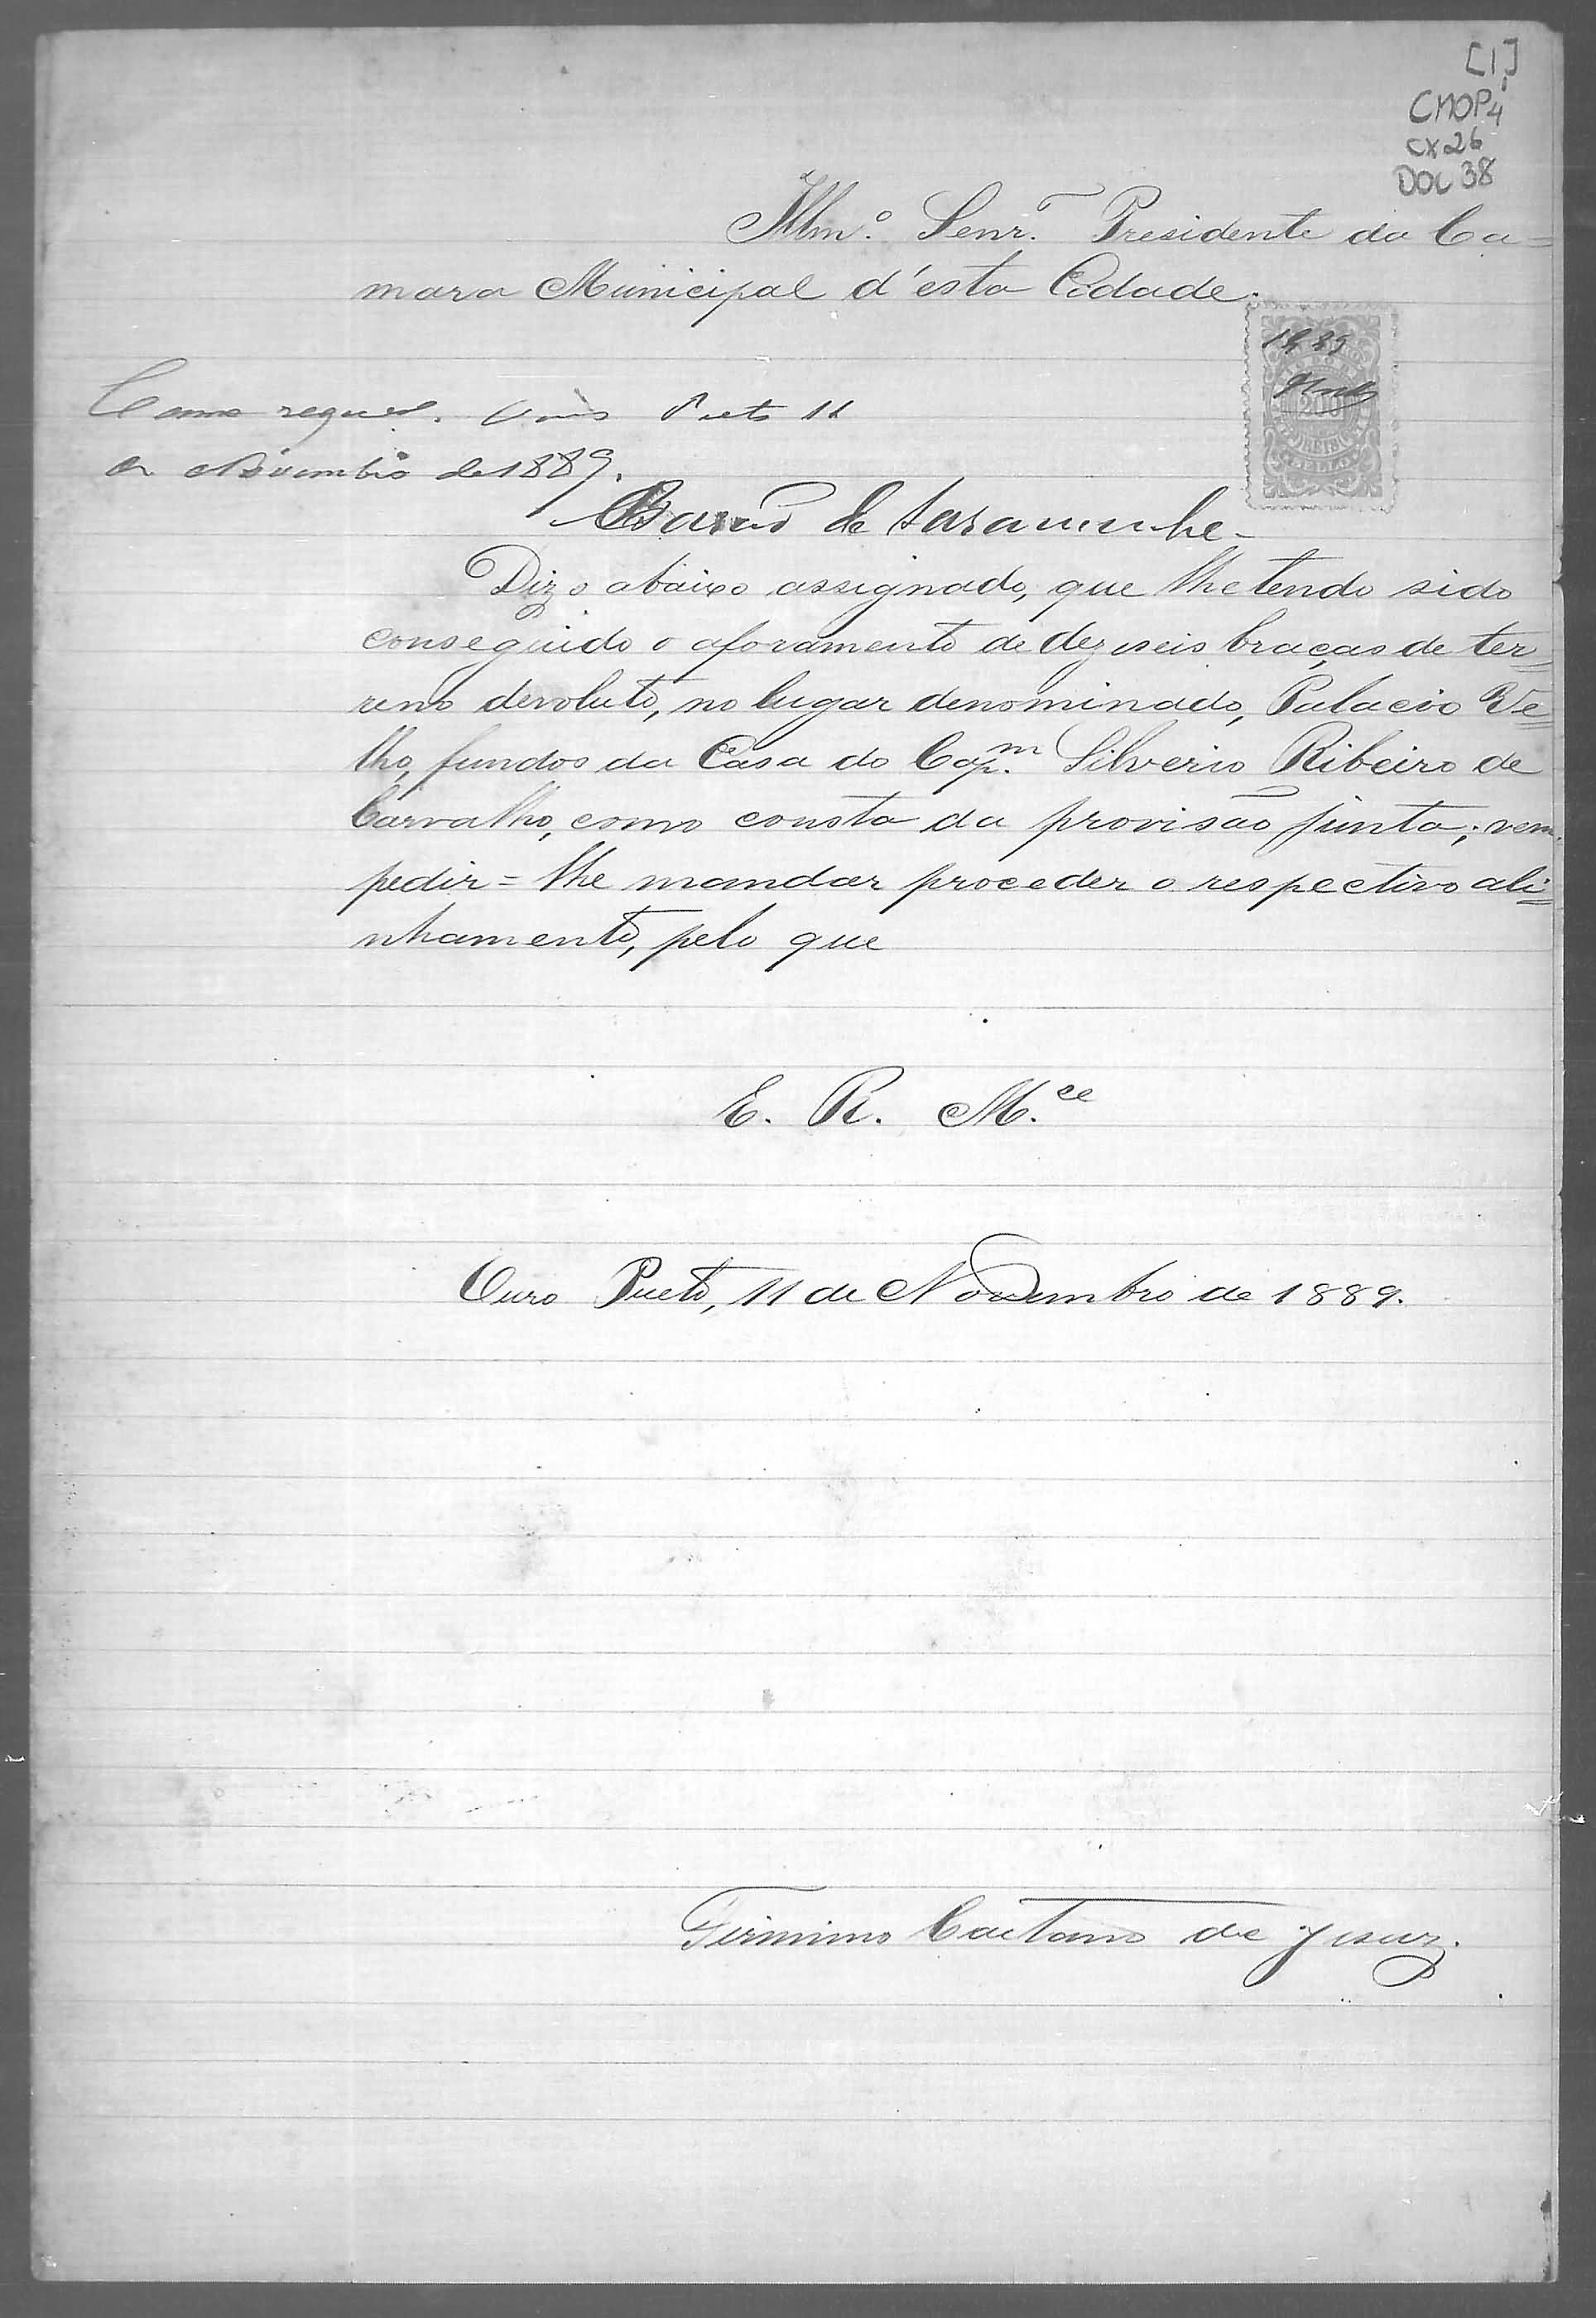 [1]
CMOP4
CX26
DOC 38
Illmº. Senr. Presidente da Ca=
mara Municipal d'esta Cidade.
1889
200
REIS
Como requer. Ouro Preto 11
de Novembro de 1889.
Barão de Saramenha
Diz o abaixo assignado, que lhe tendo sido
conseguido o aforamento de dezeseis braças de ter=
reno devoluto, no lugar denominado, Palacio Ve=
lho, fundos da Casa do Capm. Silverio Ribeiro de
Carvalho, como consta da provisão junta; vem
pedir=lhe mandar proceder o respectivo ali=
nhamento, pelo que
E. R. M.ce
Ouro Preto, 11 de Novembro de 1889.
Firmino Caetano de Jesuz.